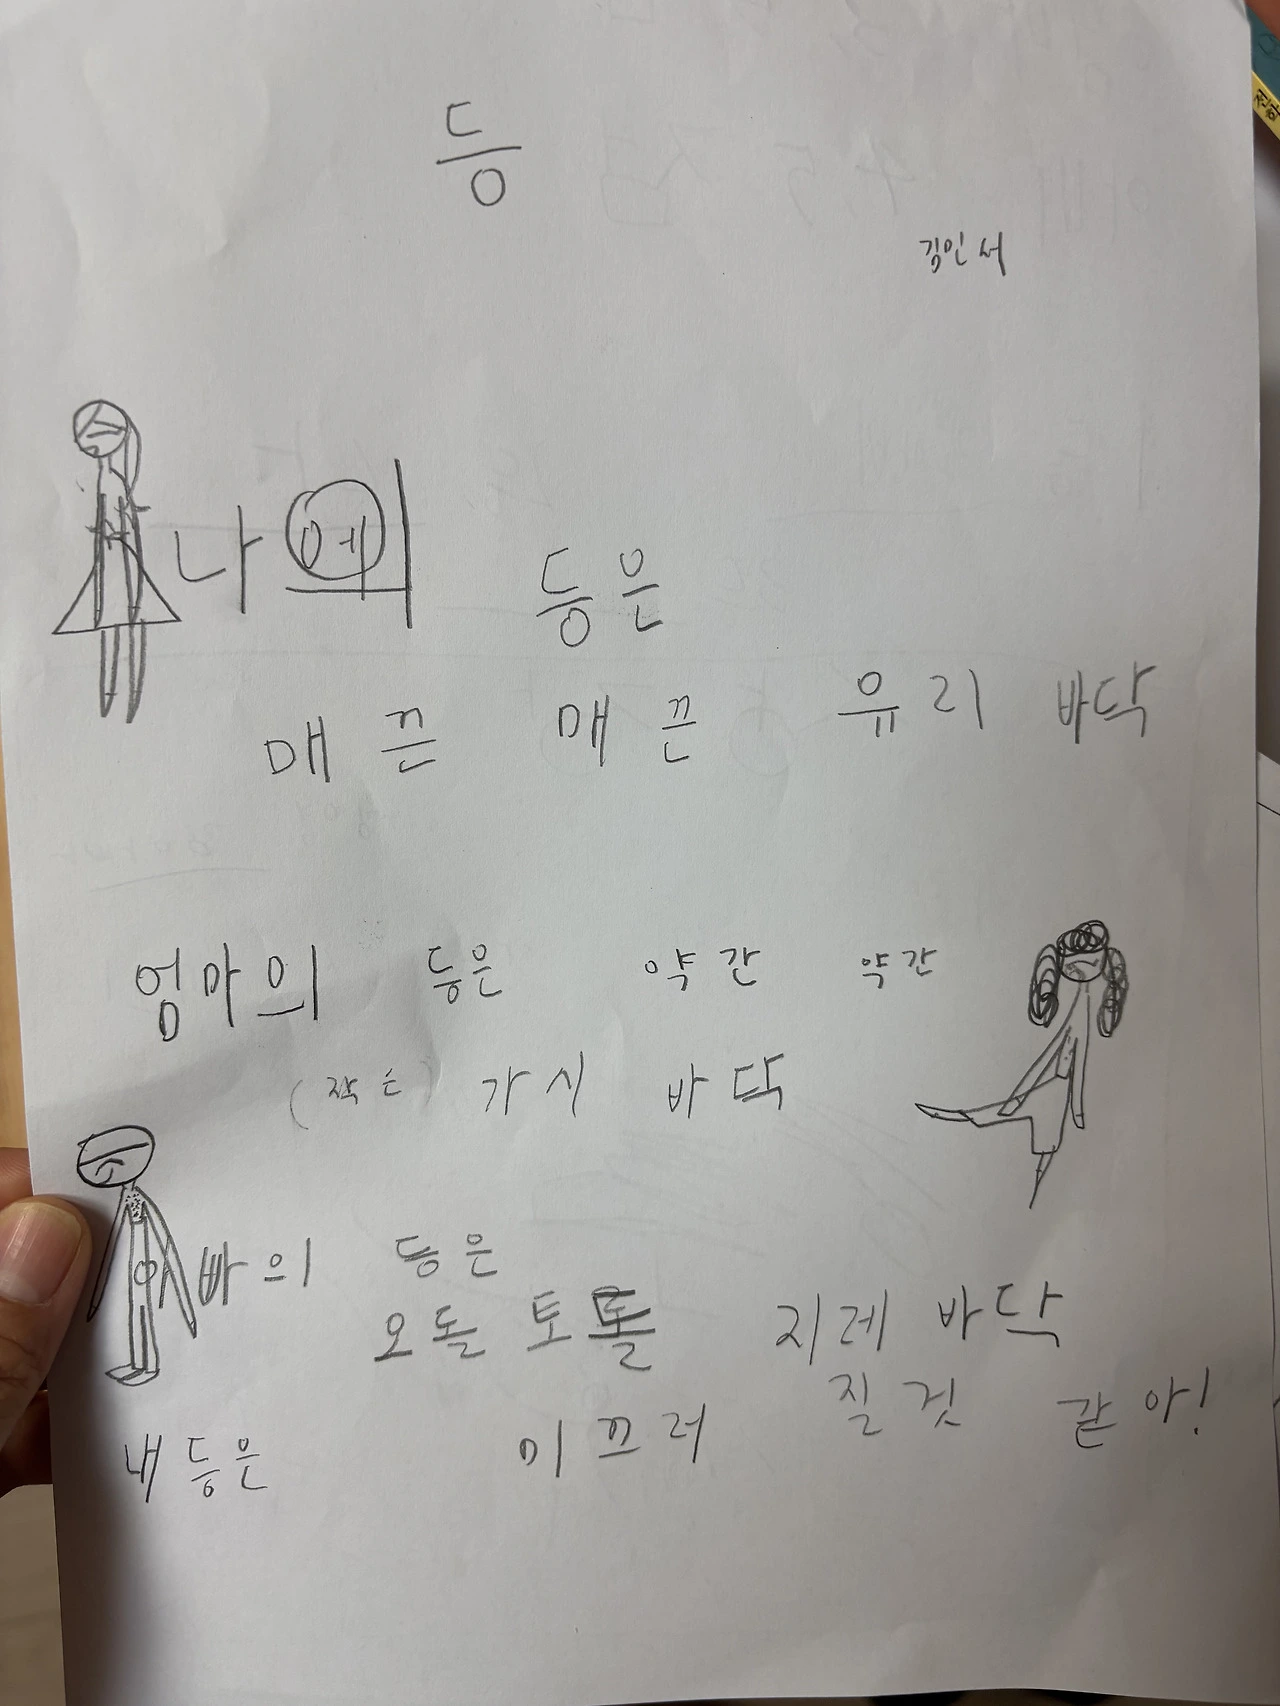 등
김인서
나의
등은
매끈 매끈 유리 바닥
엄마의 등은 약간 약간
(작은) 가시 바닥
아빠의 등은
오돌토돌 지레 바닥
내 등은 미끄러질 것 같아!